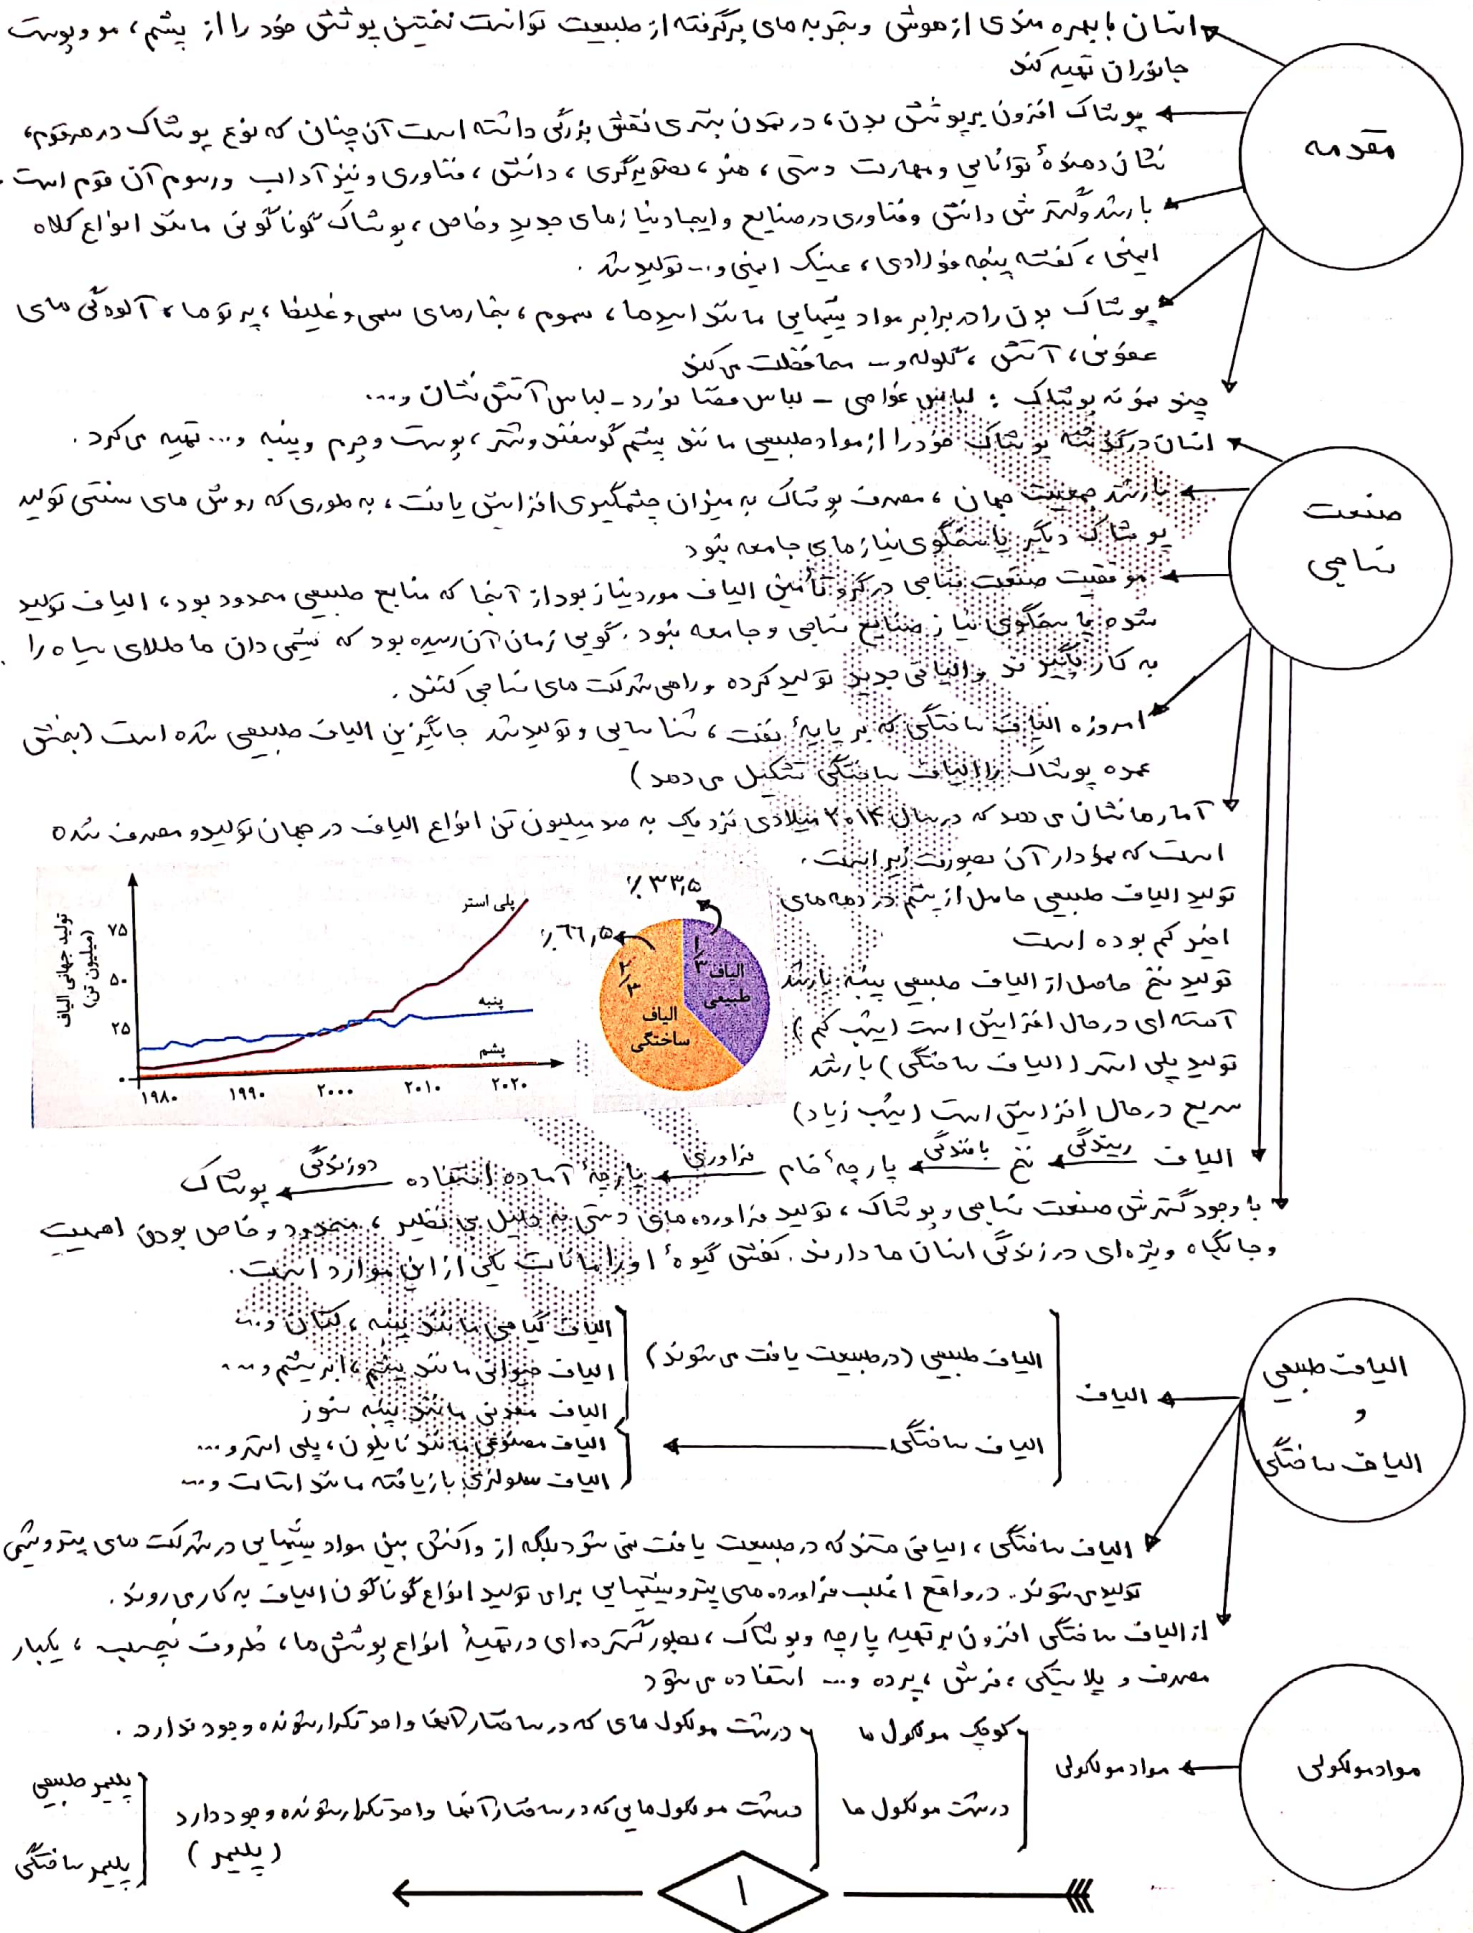 مقدمه
انسان با بهره مندی از هوش و تجربه های برگرفته از طبیعت توانست نخستین پوشش خود را از پشم، مو و پوست
جانوران تهیه کند
پوشاک افزون بر پوشش بدن، در تمدن بشری نقش بزرگی داشته است آن چنان که نوع پوشاک در هر قوم،
نشان دهندهٔ توانایی و مهارت دستی، هنر، تصویرگری، دانش، فناوری و نیز آداب و رسوم آن قوم است.
با رشد و گسترش دانش و فناوری در صنایع و ایجاد نیازهای جدید و خاص، پوشاک گوناگونی مانند انواع کلاه
ایمنی، کفش پنجه فولادی، عینک ایمنی و... تولید شد.
پوشاک بدن را در برابر مواد شیمیایی مانند اسیدها، سموم، بخارهای سمی و غلیظ، پرتوها، آلودگی های
عفونی، آتش، گلوله و... محافظت می کند
چند نمونه پوشاک: لباس غواصی - لباس فضا نورد - لباس آتش نشان و...
صنعت
نساجی
انسان در گذشته پوشاک خود را از مواد طبیعی مانند پشم گوسفند و شتر، پوست و چرم و پنبه و... تهیه می کرد.
با رشد جمعیت جهان، مصرف پوشاک به میزان چشمگیری افزایش یافت، به طوری که روش های سنتی تولید
پوشاک دیگر پاسخگوی نیازهای جامعه نبود
موفقیت صنعت نساجی در گرو تأمین الیاف مورد نیاز بود از آنجا که منابع طبیعی محدود بود، الیاف تولید
شده پاسخگوی نیاز صنایع نساجی و جامعه نبود. گویی زمان آن رسیده بود که شیمی دان ها طلای سیاه را
به کار بگیرند و الیافی جدید تولید کرده و راهی شرکت های نساجی کنند.
امروزه الیاف ساختگی که بر پایهٔ نفت، شناسایی و تولید شد جایگزین الیاف طبیعی شده است (بخش
عمده پوشاک را الیاف ساختگی تشکیل می دهد)
آمارها نشان می دهد که در سال ۲۰۱۴ میلادی نزدیک به صد میلیون تن انواع الیاف در جهان تولید و مصرف شده
است که نمودار آن بصورت زیر است.
تولید الیاف طبیعی حاصل از پشم در دهه های
اخیر کم بوده است
تولید نخ حاصل از الیاف طبیعی پنبه با رشد
آهسته ای در حال افزایش است (شیب کم)
تولید پلی استر (الیاف ساختگی) با رشد
سریع در حال افزایش است (شیب زیاد)
٪۳۳,۵
٪۶۶,۵
۱/۳
الیاف
طبیعی
۲/۳
الیاف
ساختگی
تولید جهانی الیاف
(میلیون تن)
۷۵
۵۰
۲۵
۰
پلی استر
پنبه
پشم
۱۹۸۰ ۱۹۹۰ ۲۰۰۰ ۲۰۱۰ ۲۰۲۰
الیاف ریسندگی نخ بافندگی پارچهٔ خام فراوری پارچهٔ آماده استفاده دوزندگی پوشاک
با وجود گسترش صنعت نساجی و پوشاک، تولید فراورده های دستی به دلیل بی نظیر، محدود و خاص بودن اهمیت
و جایگاه ویژه ای در زندگی انسان ها دارند. کفش گیوهٔ اورامانات یکی از این موارد است.
الیاف طبیعی
و
الیاف ساختگی
الیاف
الیاف طبیعی (در طبیعت یافت می شوند)
الیاف گیاهی مانند پنبه، کتان و...
الیاف حیوانی مانند پشم، ابریشم و...
الیاف معدنی مانند پنبه نسوز
الیاف ساختگی
الیاف مصنوعی مانند نایلون، پلی استر و...
الیاف سلولزی بازیافته مانند استات و...
الیاف ساختگی، الیافی هستند که در طبیعت یافت نمی شود بلکه از واکنش بین مواد شیمیایی در شرکت های پتروشیمی
تولید می شوند. در واقع اغلب فراورده های پتروشیمیایی برای تولید انواع گوناگون الیاف به کار می روند.
از الیاف ساختگی افزون بر تهیه پارچه و پوشاک، بطور گسترده ای در تهیهٔ انواع پوشش ها، ظروف نچسب، یکبار
مصرف و پلاستیکی، فرش، پرده و... استفاده می شود
مواد مولکولی
مواد مولکولی
کوچک مولکول ها
درشت مولکول ها
درشت مولکول هایی که در ساختار آنها واحد تکرار شونده وجود ندارد.
درشت مولکول هایی که در ساختار آنها واحد تکرار شونده وجود دارد
(پلیمر)
پلیمر طبیعی
پلیمر ساختگی
۱